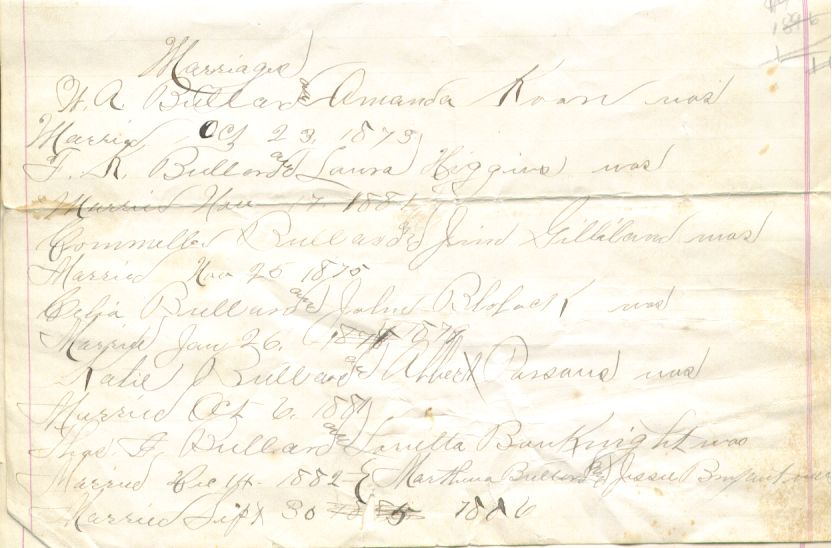 1896
Marriages
W. A Bullard and Amanda Koon was
Married Oct 23, 1873
F. K. Bullard and Laura Higgins was
Married Nov 17 1881
Bullard and Jim Gilliland was
Married Nov 25 1875
Celia Bullard and John Blolock was
Married Jan 26,
Katie Bullard and Albert Parsons was
Married Oct 6, 1881
Thos. F. Bullard and Louetta Bouknight was
Married Dec 14. 1882 Marthena Bullard and Jessie Bryant was
Married Sept 30 1886